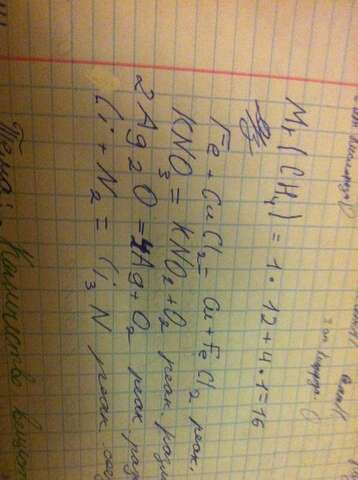 Mr(CH4) = 1·12+4·1=16
Д/з
Fe + CuCl2 = Cu + FeCl2 реак.
KNO3 = KNO2+O2 реак разл
2Ag2O = 4Ag + O2 реак раз
Li + N2 = Li3N реак сое
Тема: Количество вещест